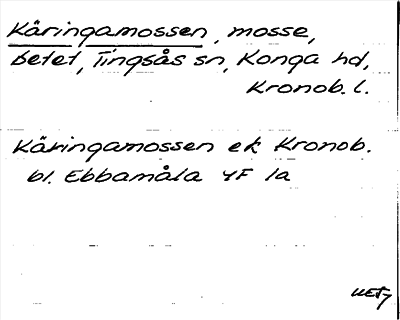 Käringamossen, mosse,
betet, Tingsås sn, Konga hd,
Kronob. l.
Käringamossen ek Kronob.
bl. Ebbamåla 4F 1a